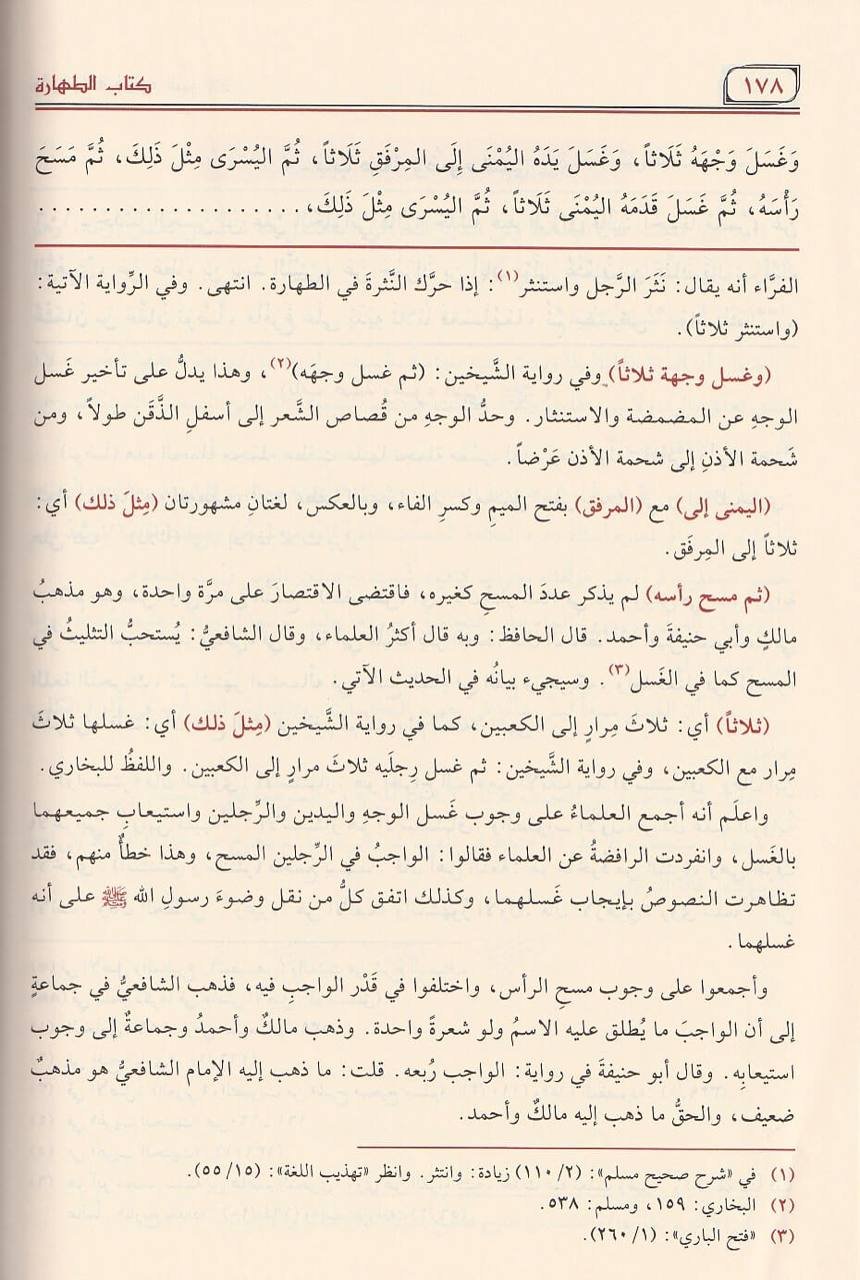 ١٧٨
كتاب الطهارة
وَغَسَلَ وَجْهَهُ ثَلَاثاً، وَغَسَلَ يَدَهُ اليُمْنَى إِلَى المِرْفَقِ ثَلَاثاً، ثُمَّ اليُسْرَى مِثْلَ ذَلِكَ، ثُمَّ مَسَحَ
رَأْسَهُ، ثُمَّ غَسَلَ قَدَمَهُ اليُمْنَى ثَلَاثاً، ثُمَّ اليُسْرَى مِثْلَ ذَلِكَ، . . . . . . . . . . . . . . . . . . .
الفرَّاء أنه يقال: نَثَرَ الرَّجل واستنثر(١): إذا حرَّك النَّثرةَ في الطهارة. انتهى. وفي الرِّواية الآتية:
(واستنثر ثلاثاً).
(وغسل وجهة ثلاثاً) وفي رواية الشَّيخين: (ثم غسل وجهَه)(٢)، وهذا يدلُّ على تأخير غَسل
الوجهِ عن المضمضة والاستنثار. وحدُّ الوجهِ من قُصاص الشَّعر إلى أسفلِ الذَّقَن طولاً، ومن
شَحمة الأذنِ إلى شحمة الأذن عَرْضاً.
(اليمنى إلى) مع (المرفق) بفتح الميمِ وكسرِ الفاء، وبالعكس، لغتانِ مشهورتان (مِثلَ ذلك) أي:
ثلاثاً إلى المِرفَق.
(ثم مسح رأسه) لم يذكر عددَ المسحِ كغيره، فاقتضى الاقتصارَ على مرَّة واحدة، وهو مذهبُ
مالكٍ وأبي حنيفةَ وأحمد. قال الحافظ: وبه قال أكثرُ العلماء، وقال الشافعيُّ: يُستحبُّ التثليثُ في
المسح كما في الغَسل(٣). وسيجيء بيانُه في الحديث الآتي.
(ثلاثاً) أي: ثلاثَ مِرارٍ إلى الكعبين، كما في رواية الشَّيخين (مِثلَ ذلك) أي: غسلها ثلاثَ
مِرار مع الكعبين، وفي رواية الشَّيخين: ثم غسل رِجلَيه ثلاثَ مرارٍ إلى الكعبين. واللفظُ للبخاري.
واعلَم أنه أجمع العلماءُ على وجوب غَسل الوجهِ واليدين والرِّجلين واستيعابِ جميعهما
بالغَسل، وانفردت الرافضةُ عن العلماء فقالوا: الواجبُ في الرِّجلين المسح، وهذا خطأٌ منهم، فقد
تظاهرت النصوصُ بإيجاب غَسلهما، وكذلك اتفق كلُّ من نقل وضوءَ رسولِ الله ﷺ على أنه
غسلهما.
وأجمعوا على وجوب مسحِ الرأس، واختلفوا في قَدْر الواجبِ فيه، فذهب الشافعيُّ في جماعةٍ
إلى أن الواجبَ ما يُطلق عليه الاسمُ ولو شعرةً واحدة. وذهب مالكٌ وأحمدُ وجماعةٌ إلى وجوب
استيعابِه. وقال أبو حنيفةَ في رواية: الواجب رُبعه. قلت: ما ذهب إليه الإمام الشافعيُّ هو مذهبٌ
ضعيف، والحقُّ ما ذهب إليه مالكٌ وأحمد.
(١) في «شرح صحيح مسلم»: (١١٠/٢) زيادة: وانتثر. وانظر «تهذيب اللغة»: (٥٥/١٥).
(٢) البخاري: ١٥٩، ومسلم: ٥٣٨.
(٣) «فتح الباري»: (٢٦٠/١).